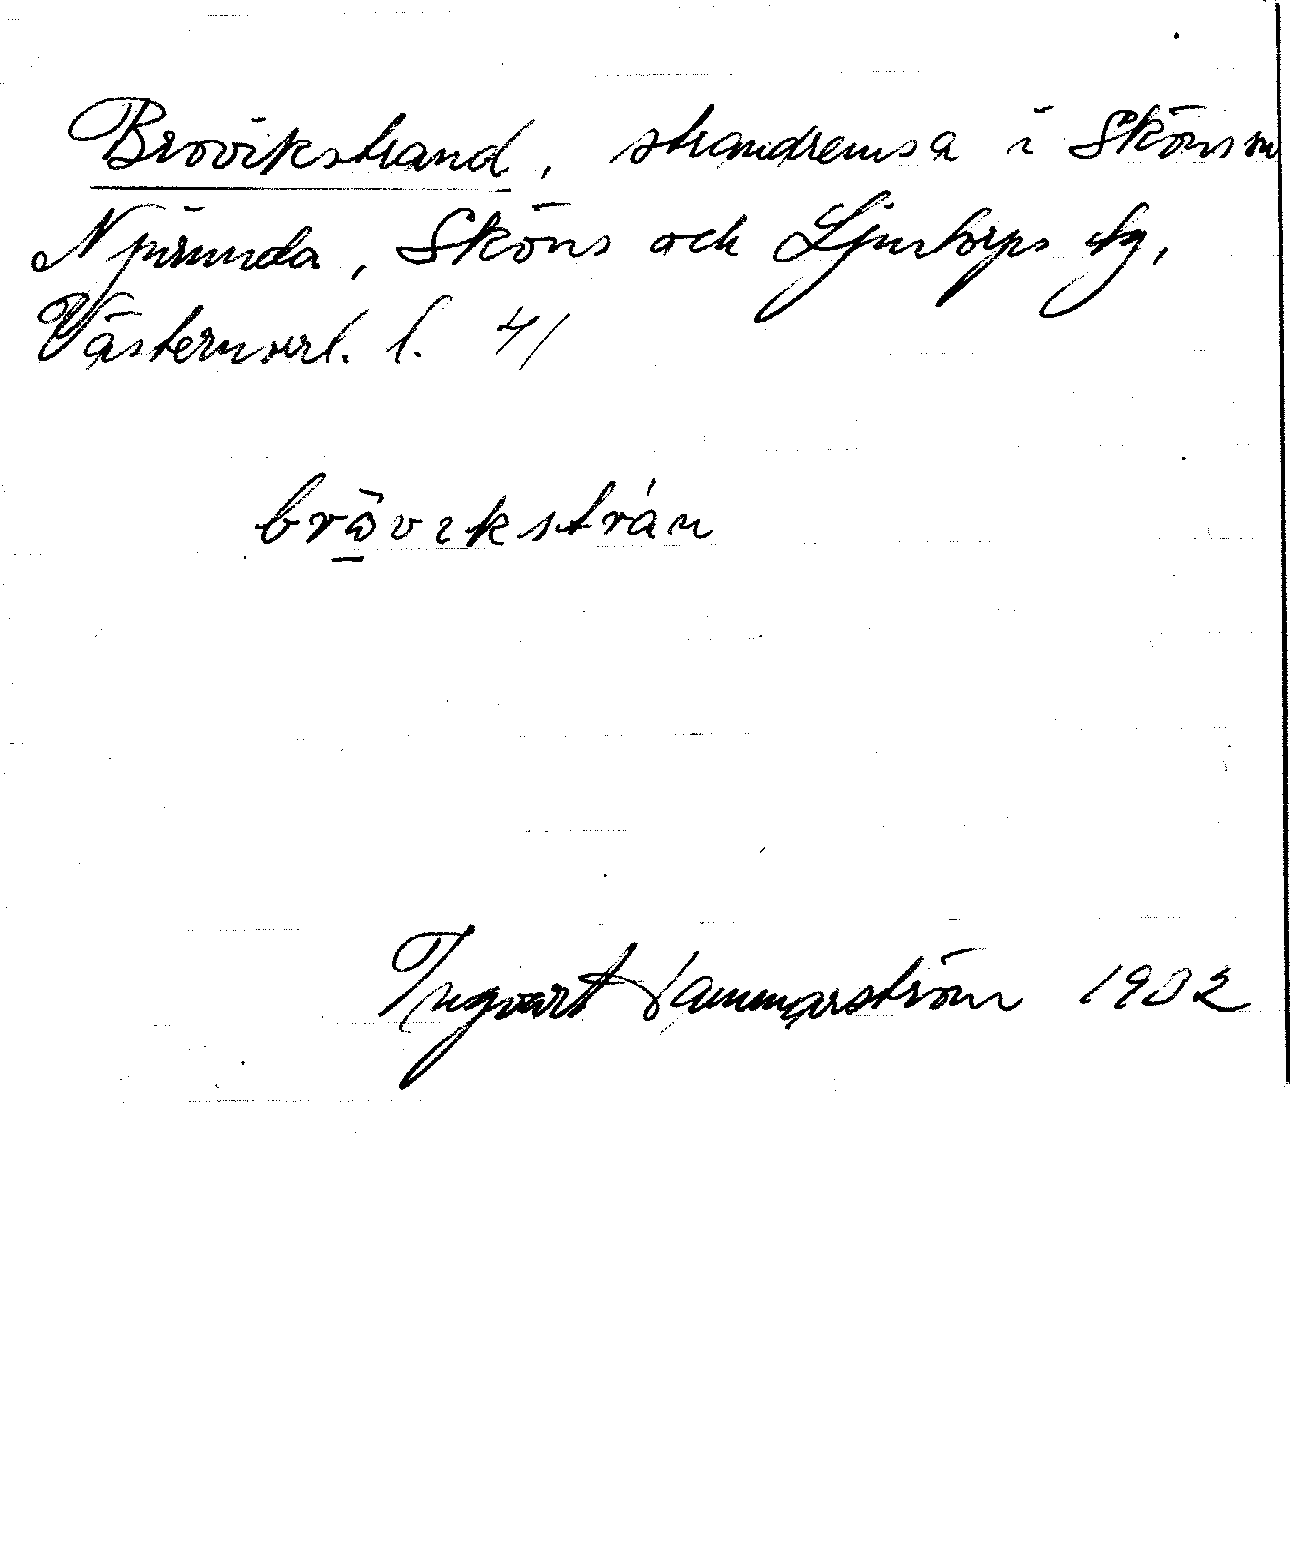 Brovikstrand, strandremsa i Sköns sn
Njurunda, Sköns och Ljustorps tg,
Västernorrl. l. 41
brωvikstrán
Ingvart Hammarström 1932